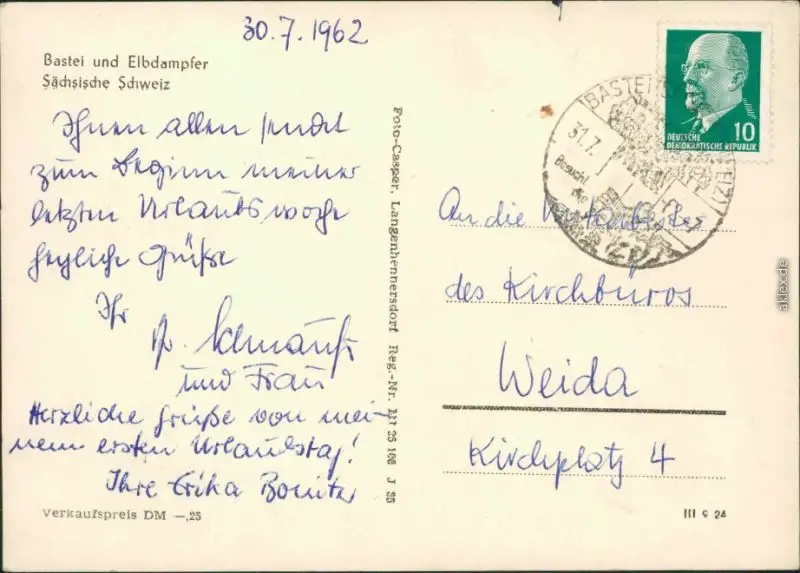 30.7.1962
Bastei und Elbdampfer
Sächsische Schweiz
Ihnen allen sendet
zum Beginn meiner
letzten Urlaubswoche
herzliche Grüße
Ihr
und Frau
Herzliche Grüße von mei-
nem ersten Urlaubstag!
Ihre Erika
Verkaufspreis DM —,25
Foto-Casper, Langenhennersdorf Reg.-Nr. 25 106 J 35
BASTEI
31.7.
Besucht
die
EIZ)
10
DEUTSCHE
DEMOKRATISCHE REPUBLIK
An die Mitarbeiter
des Kirchbüros
Weida
Kirchplatz 4
III 9 24
aklex.de